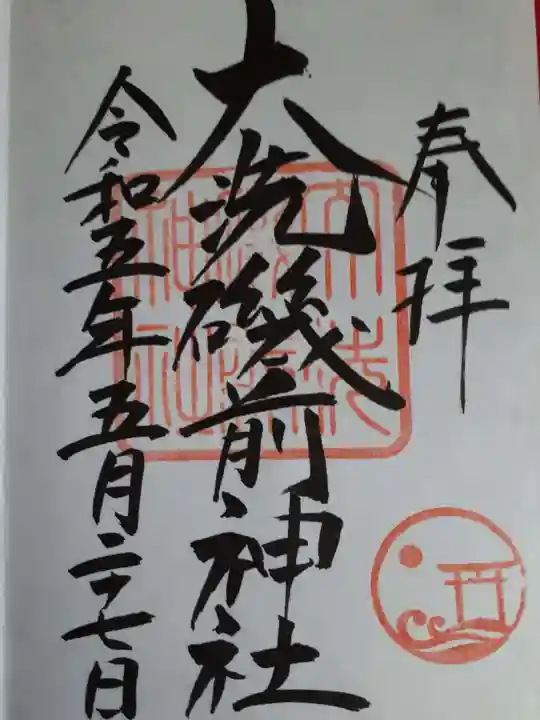 奉拝
大洗磯前神社
令和五年五月二十七日
大洗磯前神社